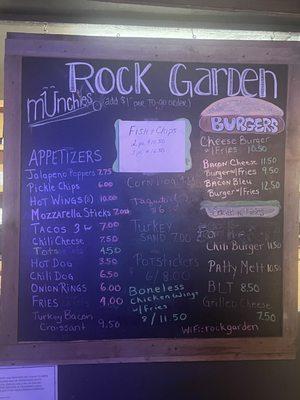 ROCK GARDEN
munchies
(add $1 per to-go order)
APPETIZERS
Jalapeno Poppers 7.75
Pickle Chips 6.00
Hot Wings 10.00
Mozzarella Sticks 7.00
Tacos 3 7.00
Chili Cheese 7.50
Tots 4.50
Hot Dog 3.50
Chili Dog 6.50
Onion Rings 6.00
Fries 4.00
Turkey Bacon
Croissant 9.50
FISH & CHIPS
Corn Dog
Taquitos
Turkey
Sand 7.00
Potstickers
6/8.00
Boneless
chicken wings
w/fries
8/11.50
BURGERS
Cheese Burger
w/Fries 10.50
Bacon Cheese 11.50
Burger w/Fries 9.50
Bacon Bleu 12.50
Burger w/Fries
Chili Burger 11.50
Patty Melt 10.50
BLT 8.50
Grilled Cheese
7.50
WiFi: rockgarden